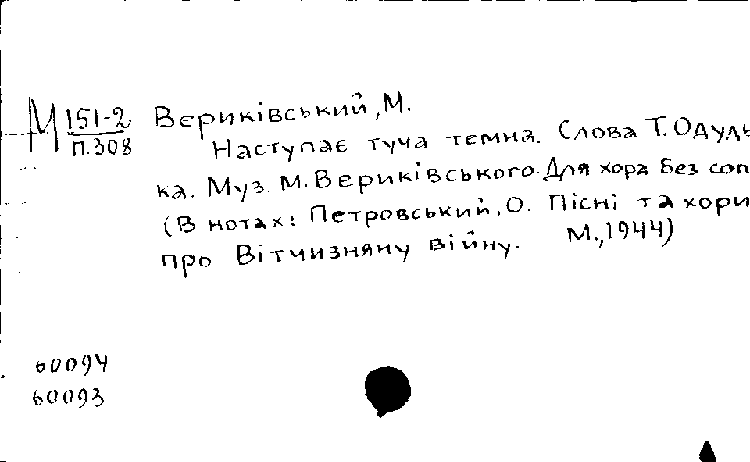 М 151-2 Вериківський, М.
П.308 Наступає туча темна. Слова Т. Одудь
ка. Муз. М. Вериківського. Для хора без соп
(В нотах: Петровський, О. Пісні та хори
про Вітчизняну війну. М., 1944)
60094
60093